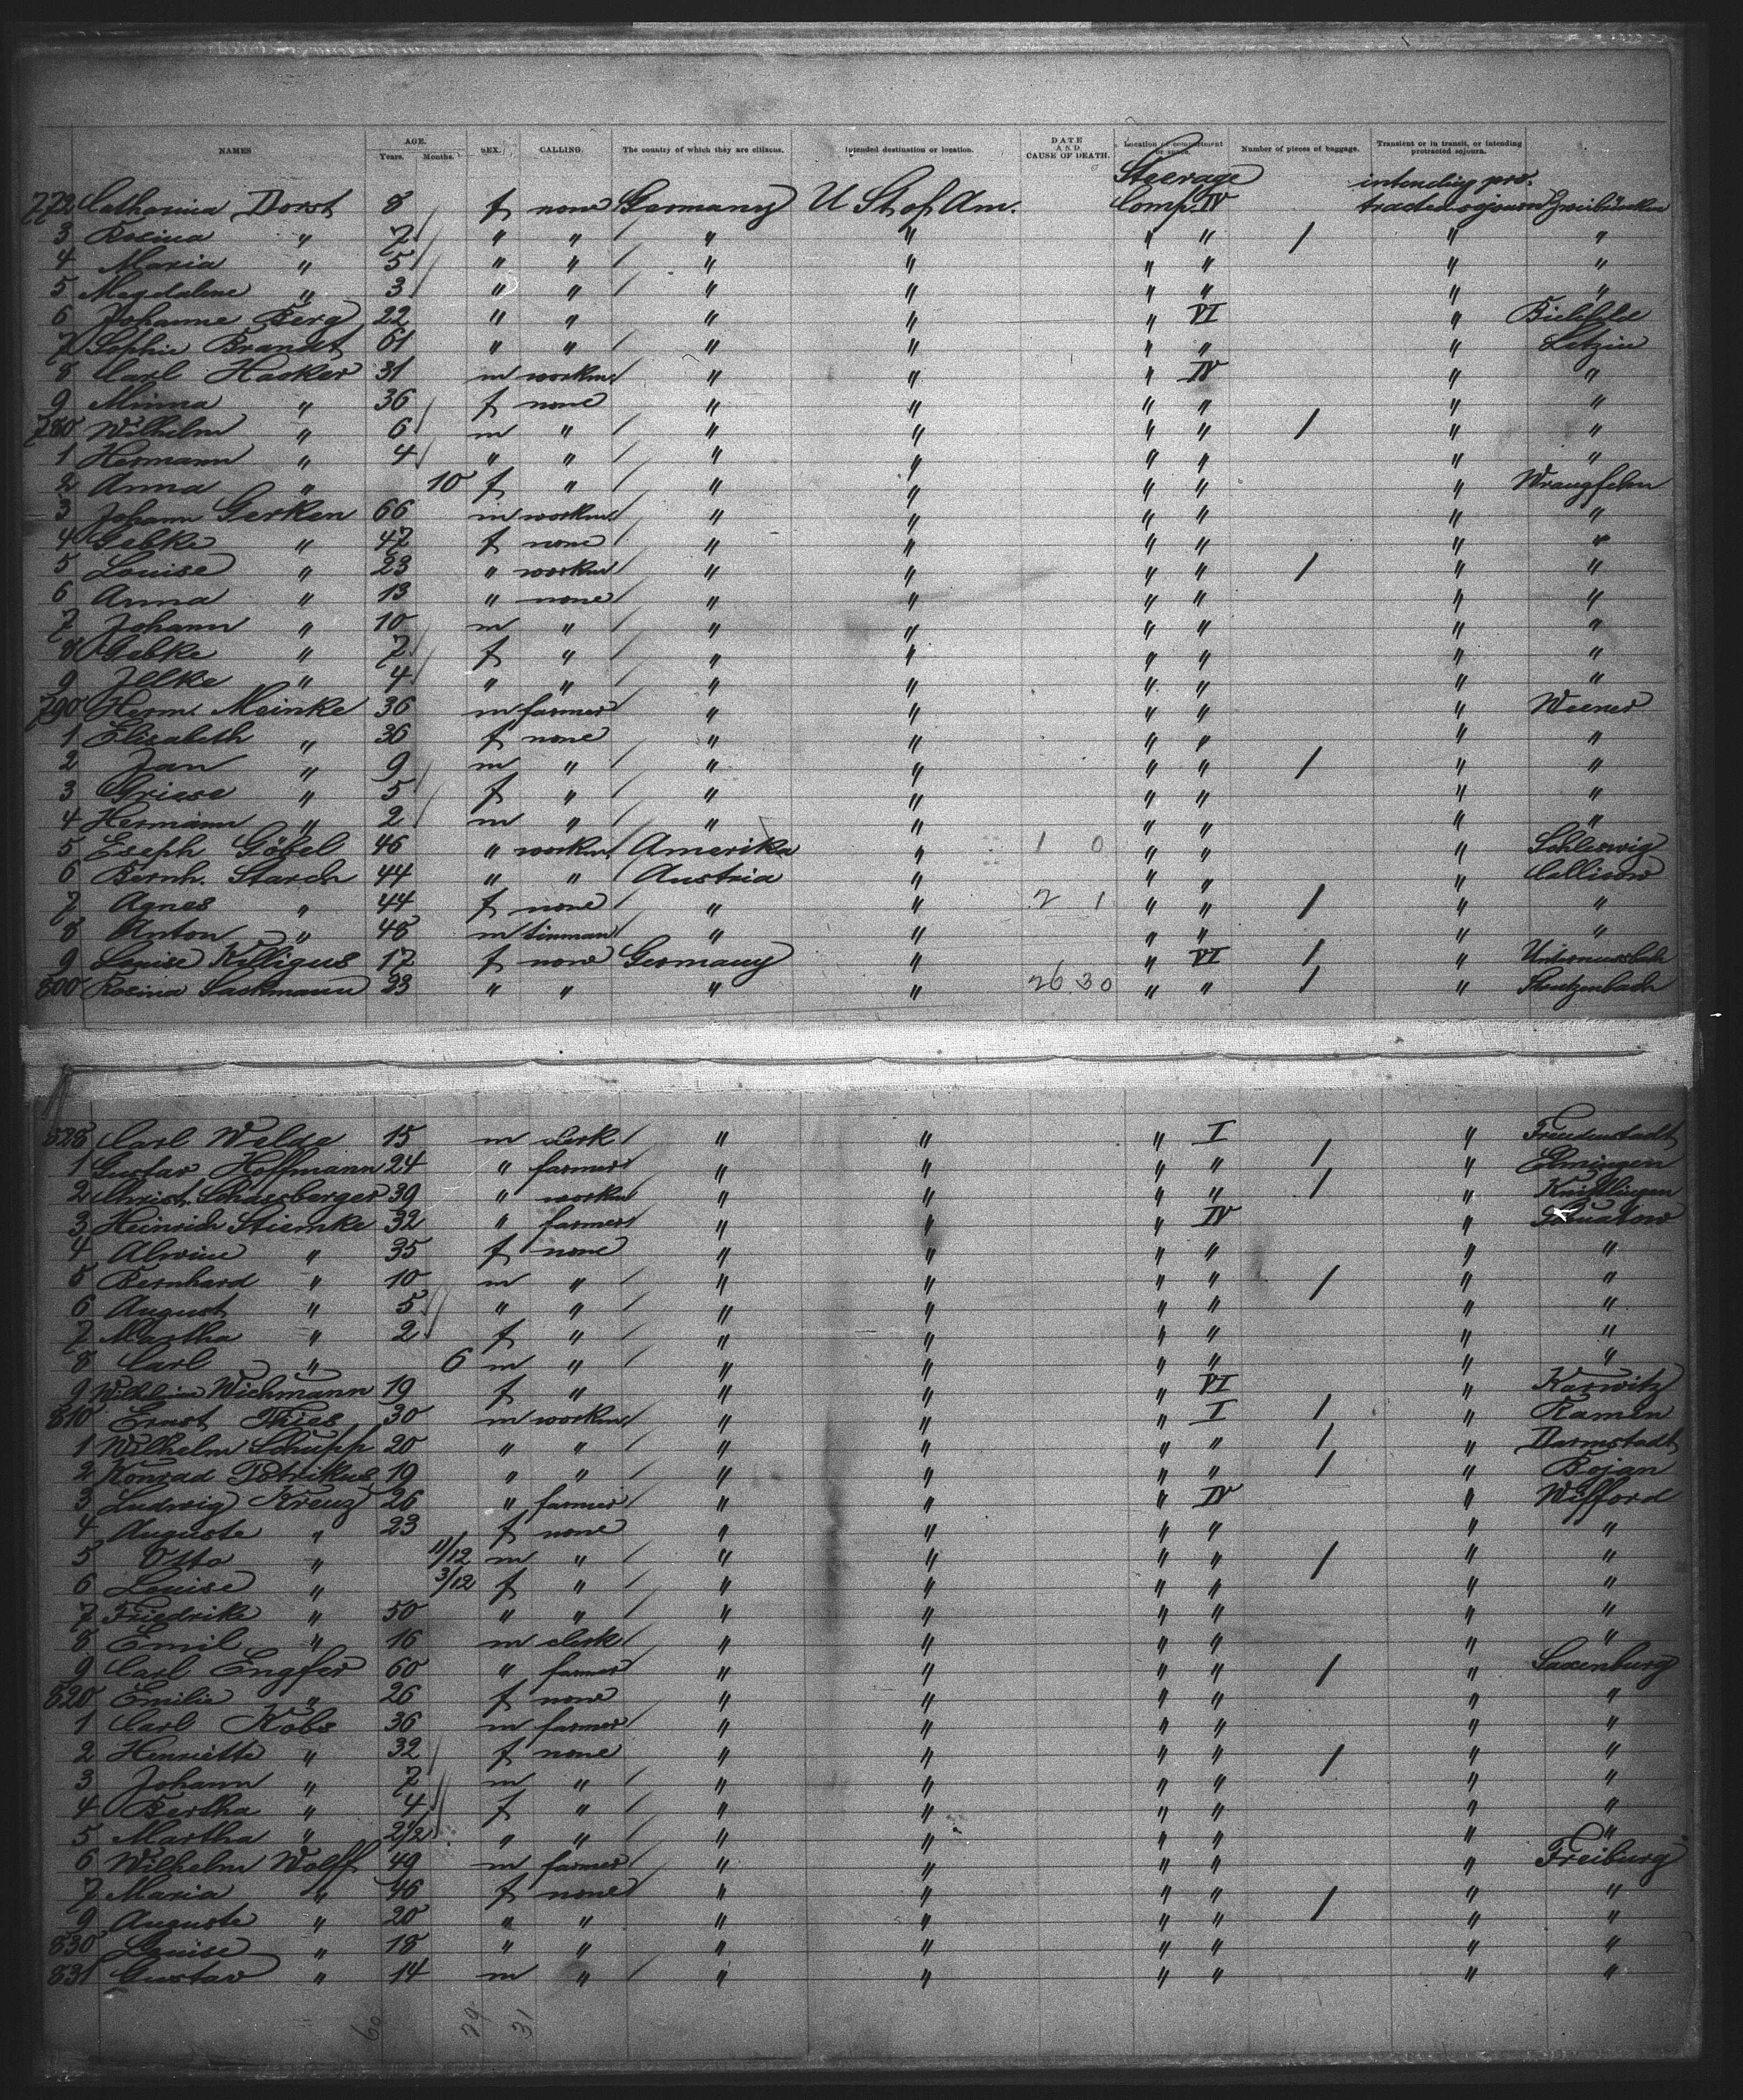 NAMES AGE. Years. Months. SEX. CALLING. The country of which they are citizens. Intended destination or location. DATE AND CAUSE OF DEATH. Location of compartment or space. Number of pieces of baggage. Transient or in transit, or intending protracted sojourn.
Steerage intending pro-
772 Catharina Dorst 8 f none Germany U St of Am. Comp. IV tracted sojourn Zweibrücken
3 Rosina " 7 " " / " " " " / " "
4 Maria " 5 " " / " " " " " "
5 Magdalene " 3 " " / " " " " " "
6 Johanne Berg 22 " " " " VI "
7 Sophie Brandt 61 " " / " " " " " Letzin
8 Carl Hacker 31 m workm " " " IV " "
9 Minna " 36 f none " " " " " "
780 Wilhelm " 6 m " / " " " " / " "
1 Hermann " 4 " " / " " " " " "
2 Anna " 10 f " / " " " " "
3 Johann Gerken 66 m workm " " " " " "
4 Gebke " 42 f none " " " " " "
5 Louise " 23 " workm " " " " / " "
6 Anna " 13 " none " " " " " "
7 Johann " 10 m " / " " " " " "
8 Gebke " 7 f " / " " " " " "
9 Jelke " 4 " " / " " " " " "
790 Herm. Meinke 36 m farmer " " " " " Weener
1 Elisabeth " 36 f none " " " " " "
2 Jan " 9 m " / " " " " / " "
3 Griese " 5 f " / " " " " " "
4 Hermann " 2 m " / " " " " " "
5 Eseph Göbel 46 " workm Amerika " 1 0 " " " Schleswig
6 Bernh. Starch 44 " " Austria " " " "
7 Agnes " 44 f none " " 2 1 " " / " "
8 Anton " 48 m tinman " " " " " "
9 Louise Killigus 17 f none Germany " " VI / "
800 Rosina Sackmann 23 " " " " 26 30 " " / "
828 Carl Welde 15 m clerk " " " I " Freudenstadt
1 Gustav Hoffmann 24 " farmer " " " " / "
2 Christ. Schassberger 39 " workm " " " " / " Knittlingen
3 Heinrich Stiemke 32 " farmer " " " IV "
4 Alwine " 35 f none " " " " " "
5 Bernhard " 10 m " / " " " " / " "
6 August " 5 " " / " " " " " "
7 Martha " 2 f " / " " " " " "
8 Carl " 6 m " / " " " " " "
9 Wilhelmine Wichmann 19 f " / " " " VI " Karwitz
810 Ernst Thies 30 m workm " " " I / " Kamen
1 Wilhelm Schupp 20 " " " " " " / " Darmstadt
2 Konrad Petrikus 19 " " / " " " " / " Bojan
3 Ludwig Kreuz 26 " farmer " " " IV " Wifford
4 Auguste " 23 f none " " " " " "
5 Otto " 11/12 m " / " " " " / " "
6 Louise " 3/12 f " / " " " " " "
7 Friedrike " 50 " " / " " " " " "
8 Emil " 16 m clerk " " " " " "
9 Carl Engfer 60 " farmer " " " " / " Saxenburg
820 Emilie " 26 f none " " " " " "
1 Carl Kobs 36 m farmer " " " " " "
2 Henriette " 32 f none " " " " / " "
3 Johann " 7 m " / " " " " " "
4 Bertha " 4 f " / " " " " " "
5 Martha " 2 1/2 " " / " " " " " "
6 Wilhelm Wolff 49 m farmer " " " " " Freiburg
7 Maria " 46 f none " " " " / " "
9 Auguste " 20 " " " " " " " "
830 Louise " 18 " " / " " " " " "
831 Gustav " 14 m " / " " " " " "
60 29 31